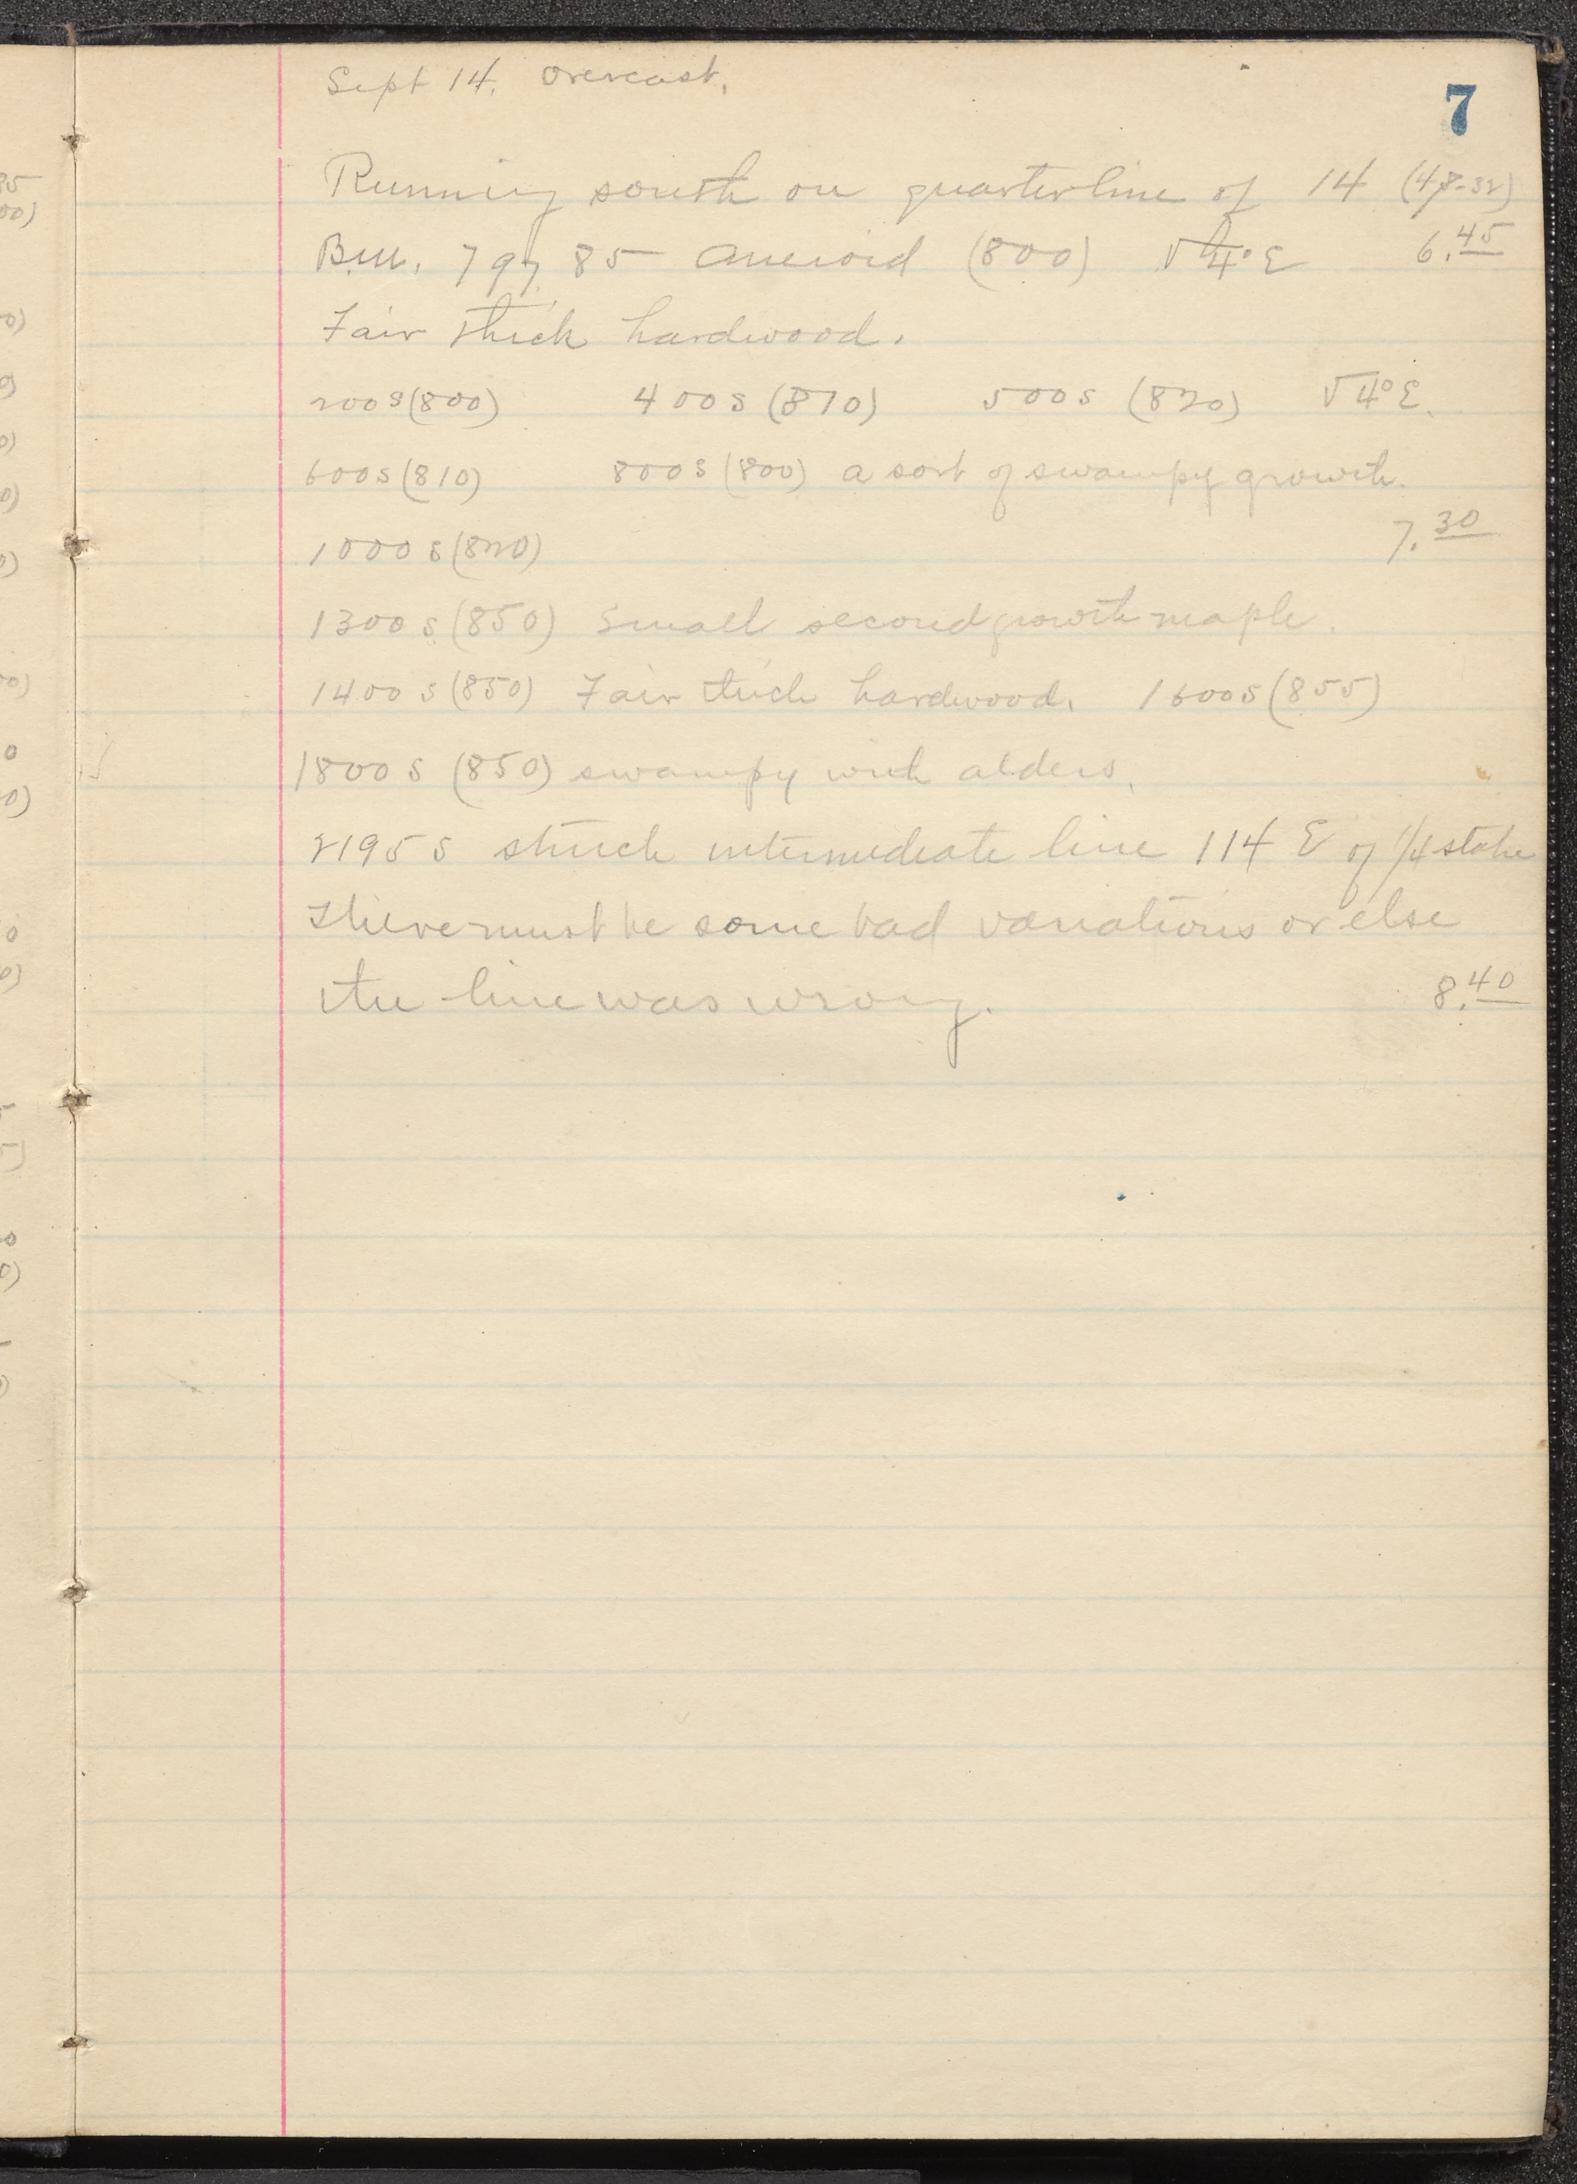 7
Sept 14. Overcast.
Running south on quarterline of 14 (48-32)
B.M. 797.85 Aneroid (800) V 4° E 6.45
Fair thick hardwood.
200 S (800) 400 S (810) 500 S (820) V 4° E.
600 S (810) 800 S (800) a sort of swampy growth.
1000 S (820) 7.30
1300 S (850) Small second growth maple.
1400 S (850) Fair thick hardwood. 1600 S (855)
1800 S (850) swampy with alders.
2195 S struck intermediate line 114 E of 1/4 stake
There must be some bad variations or else
the line was wrong. 8.40